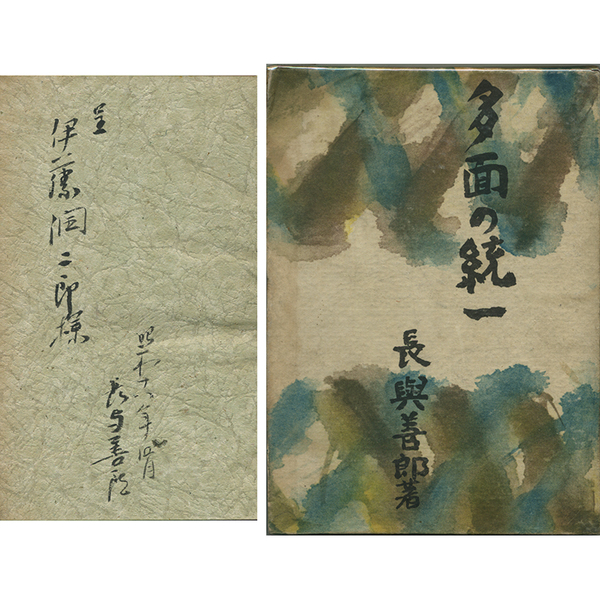 呈
伊藤潤二郎様
昭和十六年四月
長与善郎
多面の統一
長與善郎著